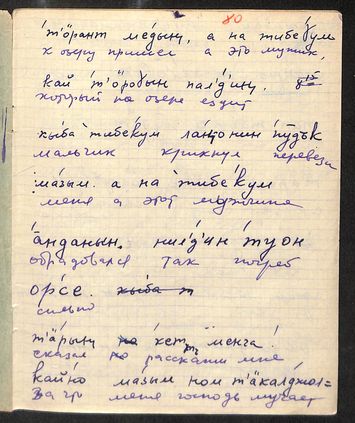 80
т'öрант мéдың, а на тибе́қум
к озеру пришел а это мужик,
кай т'öроɣын палд'иң.
который на озере ездит
кы́ба тибе́кум лаңо́нин пӱдъ́к
мальчик крикнул перевези
ма́зым. а на тибе́кум
меня а этот мужчина
а́нданын. нилд'ин туо́н
обрадовался так гребет
орсе. кыба т
сильно
т'äрың ке́т менга!
сказал расскажи мне
кайко ма́зым ном т'äкалджол=
За что меня господь мучает